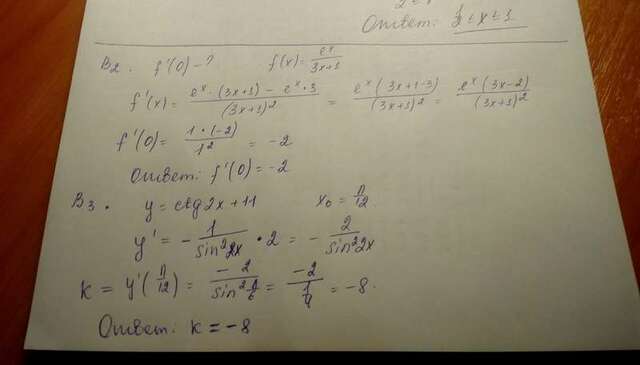 Ответ: 1/2 ≤ x ≤ 1
B2. f'(0) - ? f(x) = e^x/(3x+1)
f'(x) = (e^x·(3x+1) - e^x·3)/(3x+1)^2 = e^x(3x+1-3)/(3x+1)^2 = e^x(3x-2)/(3x+1)^2
f'(0) = 1·(-2)/1^2 = -2
Ответ: f'(0) = -2
B3. y = ctg2x+11 x0 = π/12.
y' = - 1/sin^2 2x · 2 = - 2/sin^2 2x
k = y'(π/12) = -2/sin^2 π/6 = -2/(1/4) = -8.
Ответ: k = -8